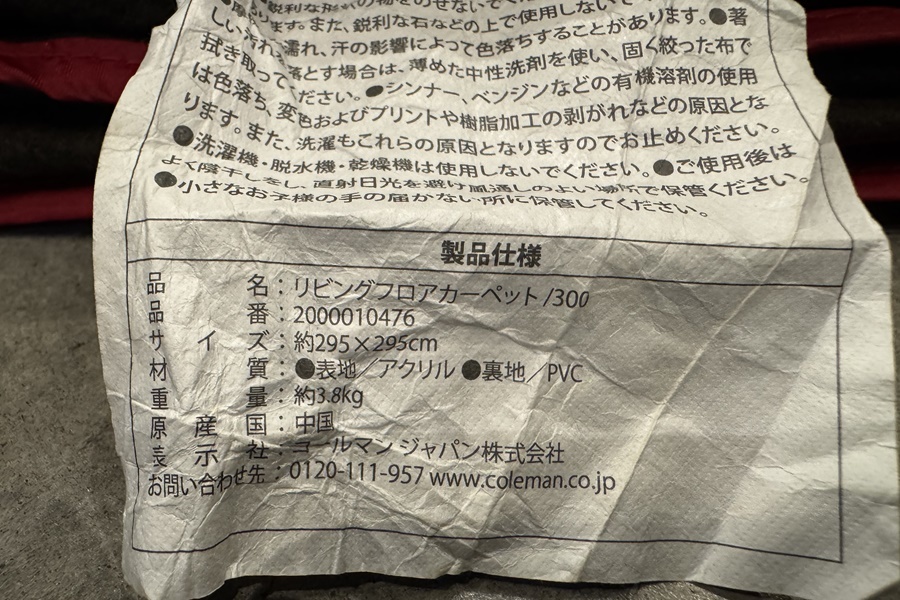 鋭利な形の物をのせないでく
ります。また、鋭利な石などの上で使用しないで
しい汚れ、濡れ、汗の影響によって色落ちすることがあります。●著
拭き取って ださい。●シンナー、ベンジンなどの有機溶剤の使用
落とす場合は、薄めた中性洗剤を使い、固く絞った布で
は色落ち、変色およびプリントや樹脂加工の剥がれなどの原因とな
ります。また、洗濯もこれらの原因となりますのでお止めください。
●洗濯機・脱水機・乾燥機は使用しないでください。●ご使用後は
よく陰干しをし、直射日光を避け風通しのよい場所で保管ください。
●小さなお子様の手の届かない所に保管してください。
製品仕様
品名：リビングフロアカーペット/300
品番：2000010476
サイズ：約295×295cm
材質：●表地／アクリル ●裏地／PVC
重量：約3.8kg
原産国：中国
表示社：コールマン ジャパン株式会社
お問い合わせ先：0120-111-957 www.coleman.co.jp